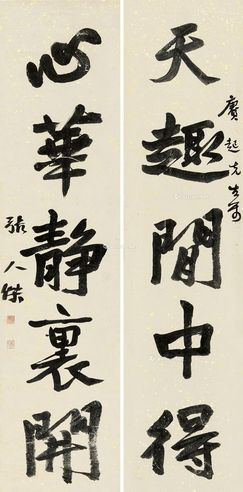 天趣閒中得
賡起先生前
心華静裏開
張人傑